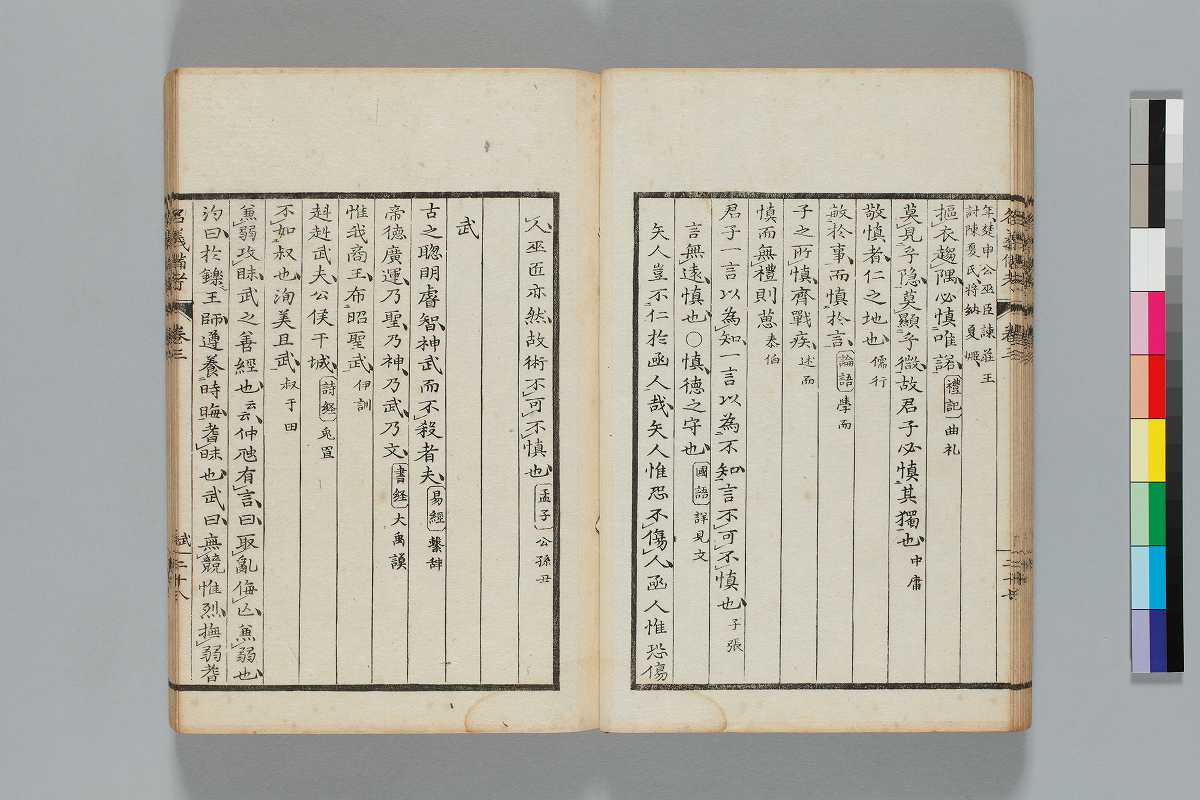 年楚申公巫臣諫莊王
討陳夏氏将納夏姬
摳衣趨隅必慎唯諾 禮記 曲礼
莫見乎隐莫顯乎微故君子必慎其獨也 中庸
敬慎者仁之地也 儒行
敏於事而慎於言 論語 學而
子之所慎齊戰疾 述而
慎而無禮則葸 泰伯
君子一言以為知一言以為不知言不可不慎也 子張
言無遠慎也〇慎德之守也 國語 詳見文
矢人豈不仁於函人哉矢人惟恐不傷人函人惟恐傷
人巫匠亦然故術不可不慎也 孟子 公孫丑
武
古之聡明睿智神武而不殺者夫 易經 繫辞
帝德廣運乃聖乃神乃武乃文 書経 大禹謨
惟我商王布昭聖武 伊訓
赳赳武夫公侯干城 詩経 兎罝
不如叔也洵美且武 叔于田
兼弱攻昧武之善經也云云仲虺有言曰取亂侮亡兼弱也
汋曰於鑠王師遵養時晦耆昧也武曰無競惟烈撫弱耆
卷三
武 二十八